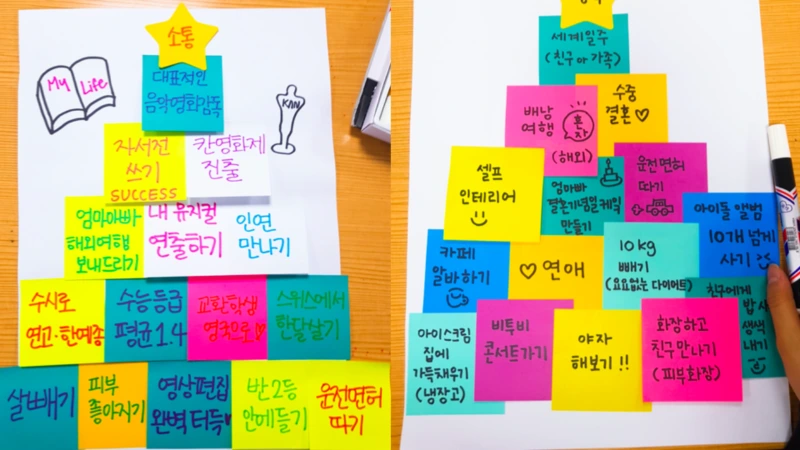 소통
My Life
대표적인
음악영화감독
KAN
자서전
쓰기
SUCCESS
칸영화제
진출
엄마아빠
해외여행
보내드리기
내 뮤지컬
연출하기
인연
만나기
수시로
연고·한예종
수능등급
평균 1.4
교환학생
영국으로♡
스위스에서
한달살기
살빼기
피부
좋아지기
영상편집
완벽 터득♥
반 2등
안에들기
운전면허
따기
세계일주
(친구 or 가족)
배낭
여행
혼자
(해외)
수중
결혼♡
셀프
인테리어
엄마빠
결혼기념일 케익
만들기
운전면허
따기
아이돌 앨범
10개 넘게
사기
카페
알바하기
♡연애
10kg
빼기
(요요없는 다이어트)
친구에게
밥 사
생색
내기
아이스크림
집에
가득채우기
(냉장고)
비투비
콘서트가기
야자
해보기!!
화장하고
친구만나기
(피부화장)